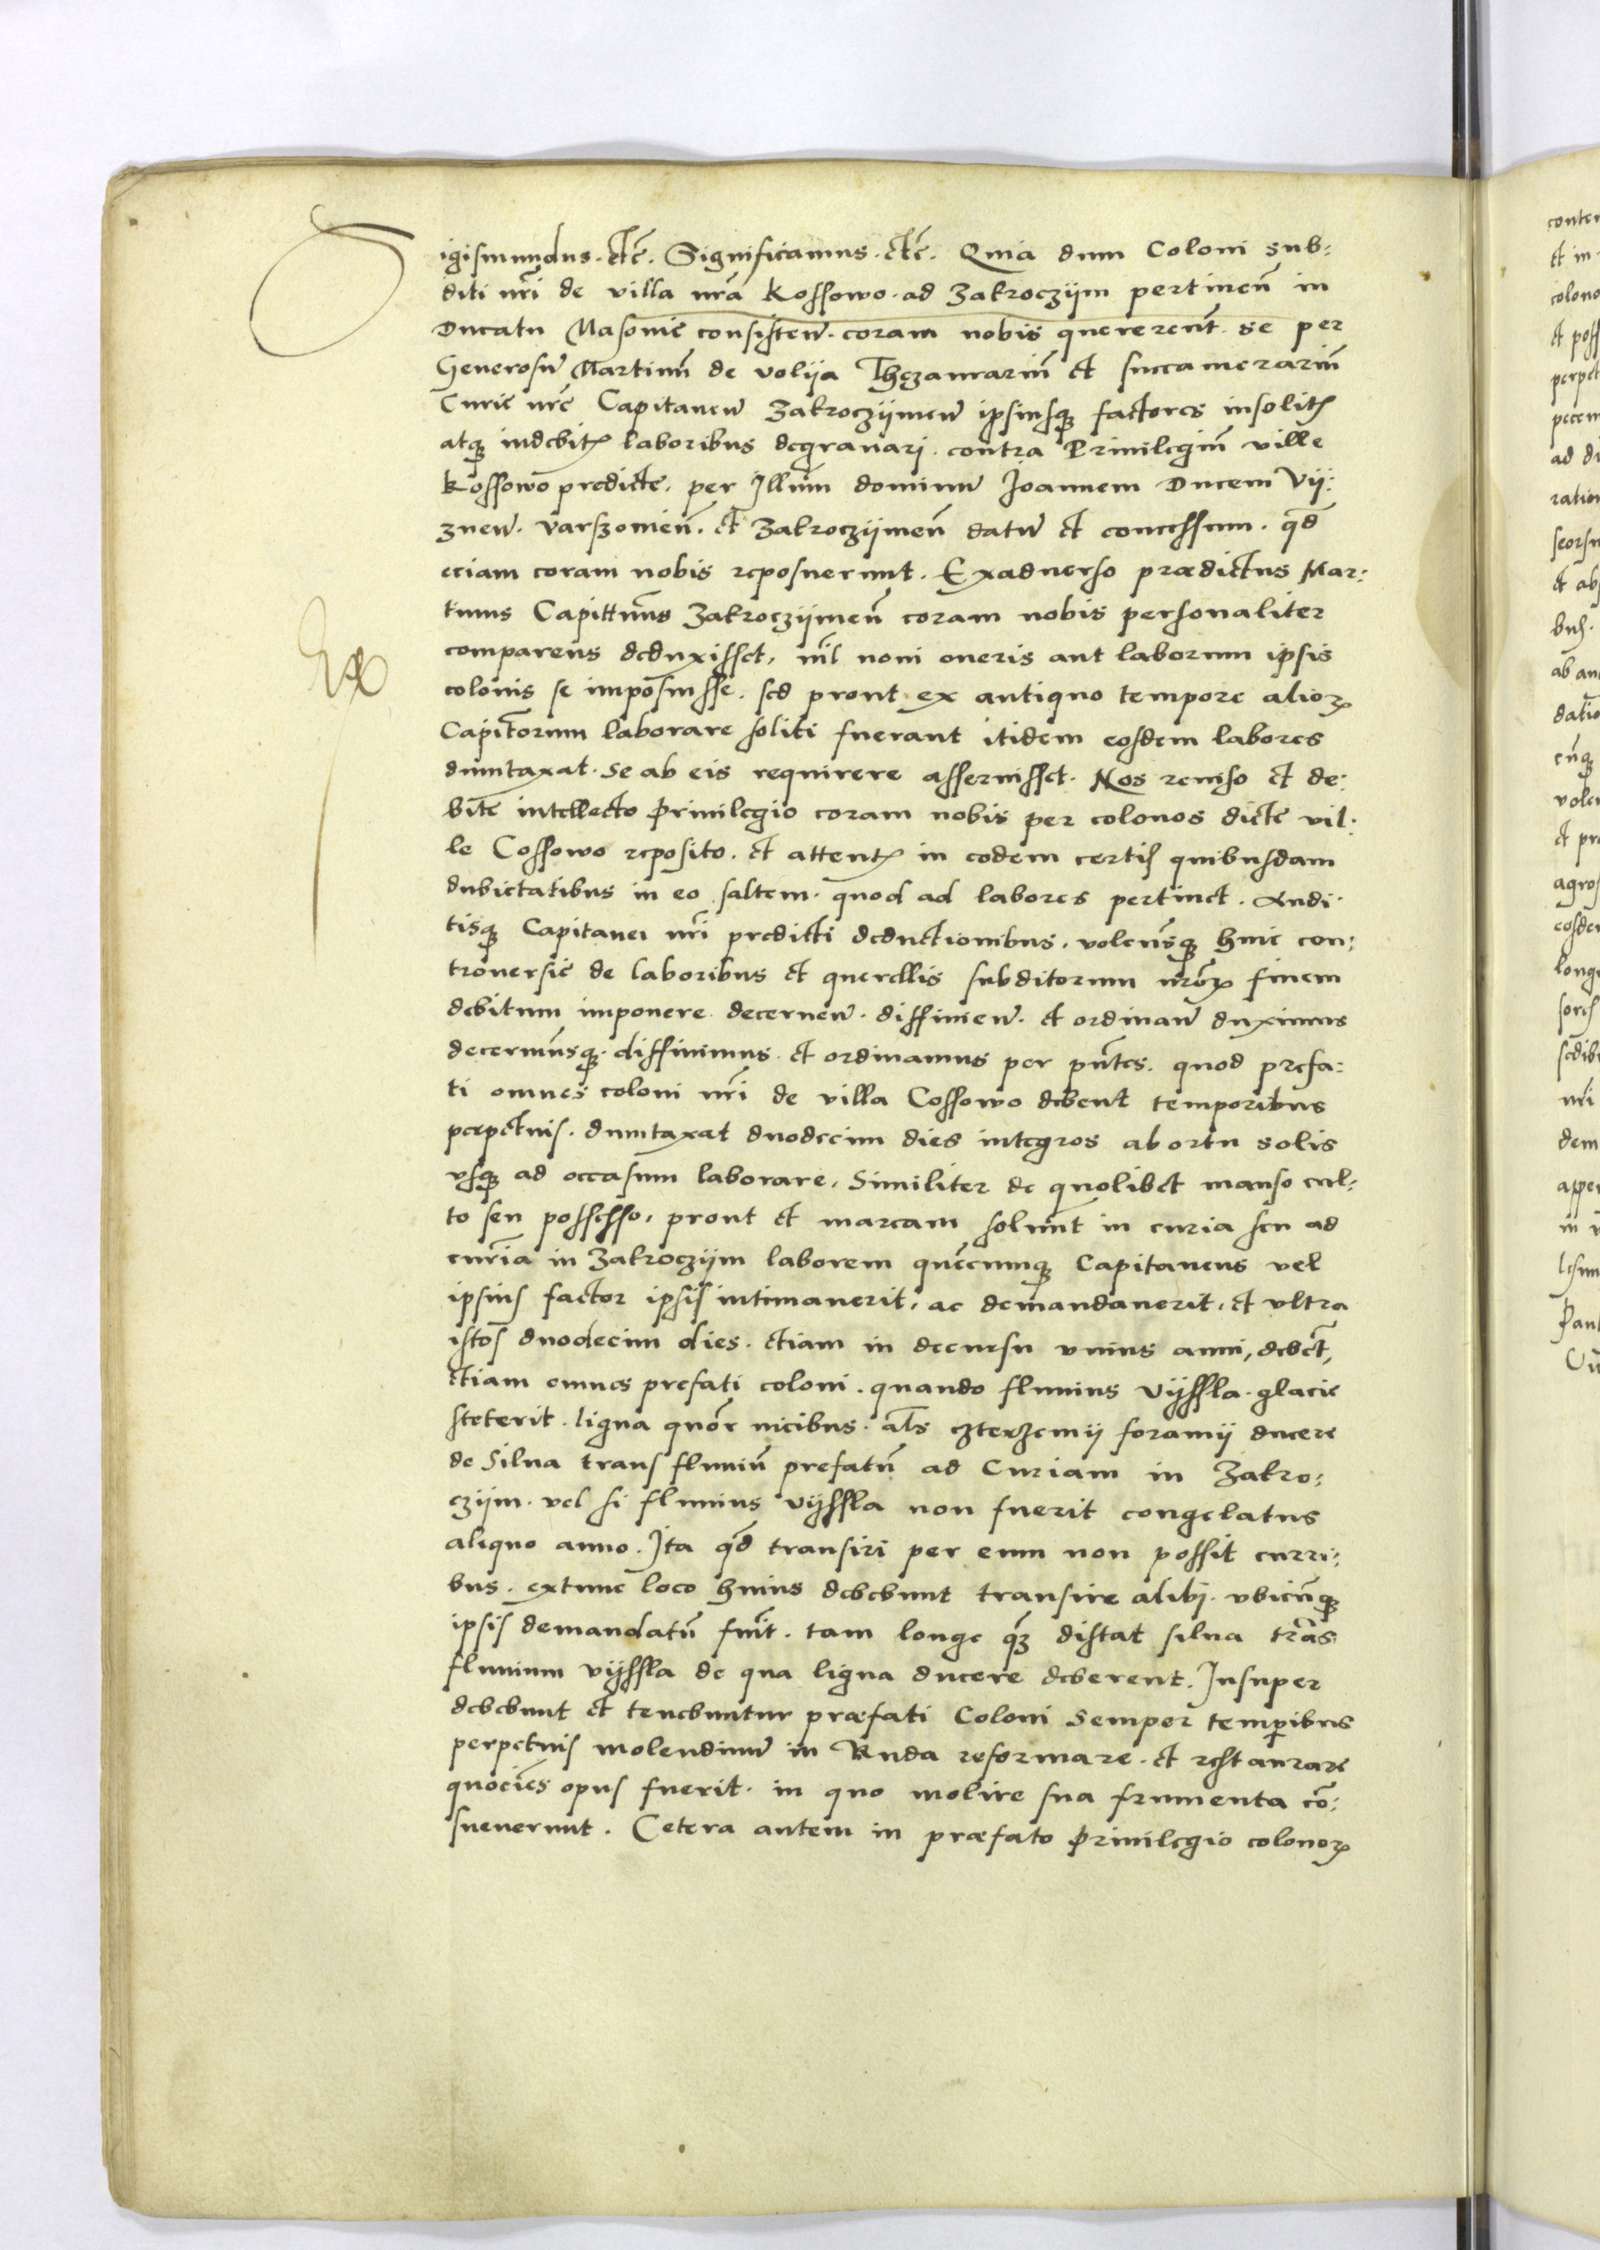 Sigismundus. etc̄. Significamus. etc̄. Quia dum Coloni sub:
diti nr̄i de villa nr̄a Kossowo. ad Zakroczijm pertineñ in
Ducatu Masovie consisteñ. coram nobis quererent̄. se per
Generosū Martinū de volija Thezaurariū et succamerariū
Curie nr̄e Capitaneū Zakroczijmeñ ipsiusq; factores insolitis
atq; indebitis laboribus degravari. contra Privilegiū ville
Kossowo predicte. per Illūm dominū Joannem Ducem Vij:
zneñ. Varszovieñ. et Zakroczijmeñ datū et concessum. qd̄
eciam coram nobis reposuerunt. Exadverso prædictus Mar:
tinus Capittn̄us Zakroczijmeñ coram nobis personaliter
comparens deduxisset, nīl novi oneris aut laborum ipsis
colonis se imposuisse. sed prout ex antiquo tempore alior̨
Capit̄orum laborare soliti fuerant itidem eosdem labores
dumtaxat. se ab eis requirere asseruisset. Nos reviso et de:
bite intellecto Privilegio coram nobis per colonos dicte vil:
le Cossowo reposito. et attentis in eodem certis quibusdam
dubietatibus in eo saltem. quod ad labores pertinet. Audi:
tisq; Capitanei nr̄i predicti deductionibus. volen̄sq; huic con:
troversie de laboribus et querellis subditorum nr̄or̨ finem
debitum imponere decerneñ. diffinieñ. et ordinañ duximus
decernim̄usq;. diffinimus. et ordinamus per pn̄tes. quod prefa:
ti omnes coloni nr̄i de villa Cossowo debent temporibus
perpetuis. dumtaxat duodecim dies integros ab ortu solis
usq; ad occasum laborare. Similiter de quolibet manso cul:
to seu possesso, prout et marcam solvunt in curia seu ad
curiā in Zakroczijm laborem quēcumq; Capitaneus vel
ipsius factor ipsis intimaverit, ac demandaverit, et ultra
istos duodecim dies. etiam in decursu unius anni, debēt,
etiam omnes prefati coloni. quando fluvius Vijssla. glacie
steterit. ligna quōr vicibus. al̄s czterzemij foramij ducere
de Silva trans fluviū prefatū ad Curiam in Zakro:
czijm. vel si fluvius vijssla non fuerit congelatus
aliquo anno. Ita qd̄ transiri per eum non possit curri:
bus. extunc loco huius debebunt transire alibj. ubicūq;
ipsis demandatū fuīt. tam longe q̄z distat silva trās
fluvium vijssla de qua ligna ducere deberent. Insuper
debebunt et tenebuntur præfati Coloni Semper temporibus
perpetuis molendinū in Ruda reformare. et restaurare
quociēs opus fuerit. in quo molire sua frumenta cō:
sueverunt. Cetera autem in præfato Privilegio colonor̨